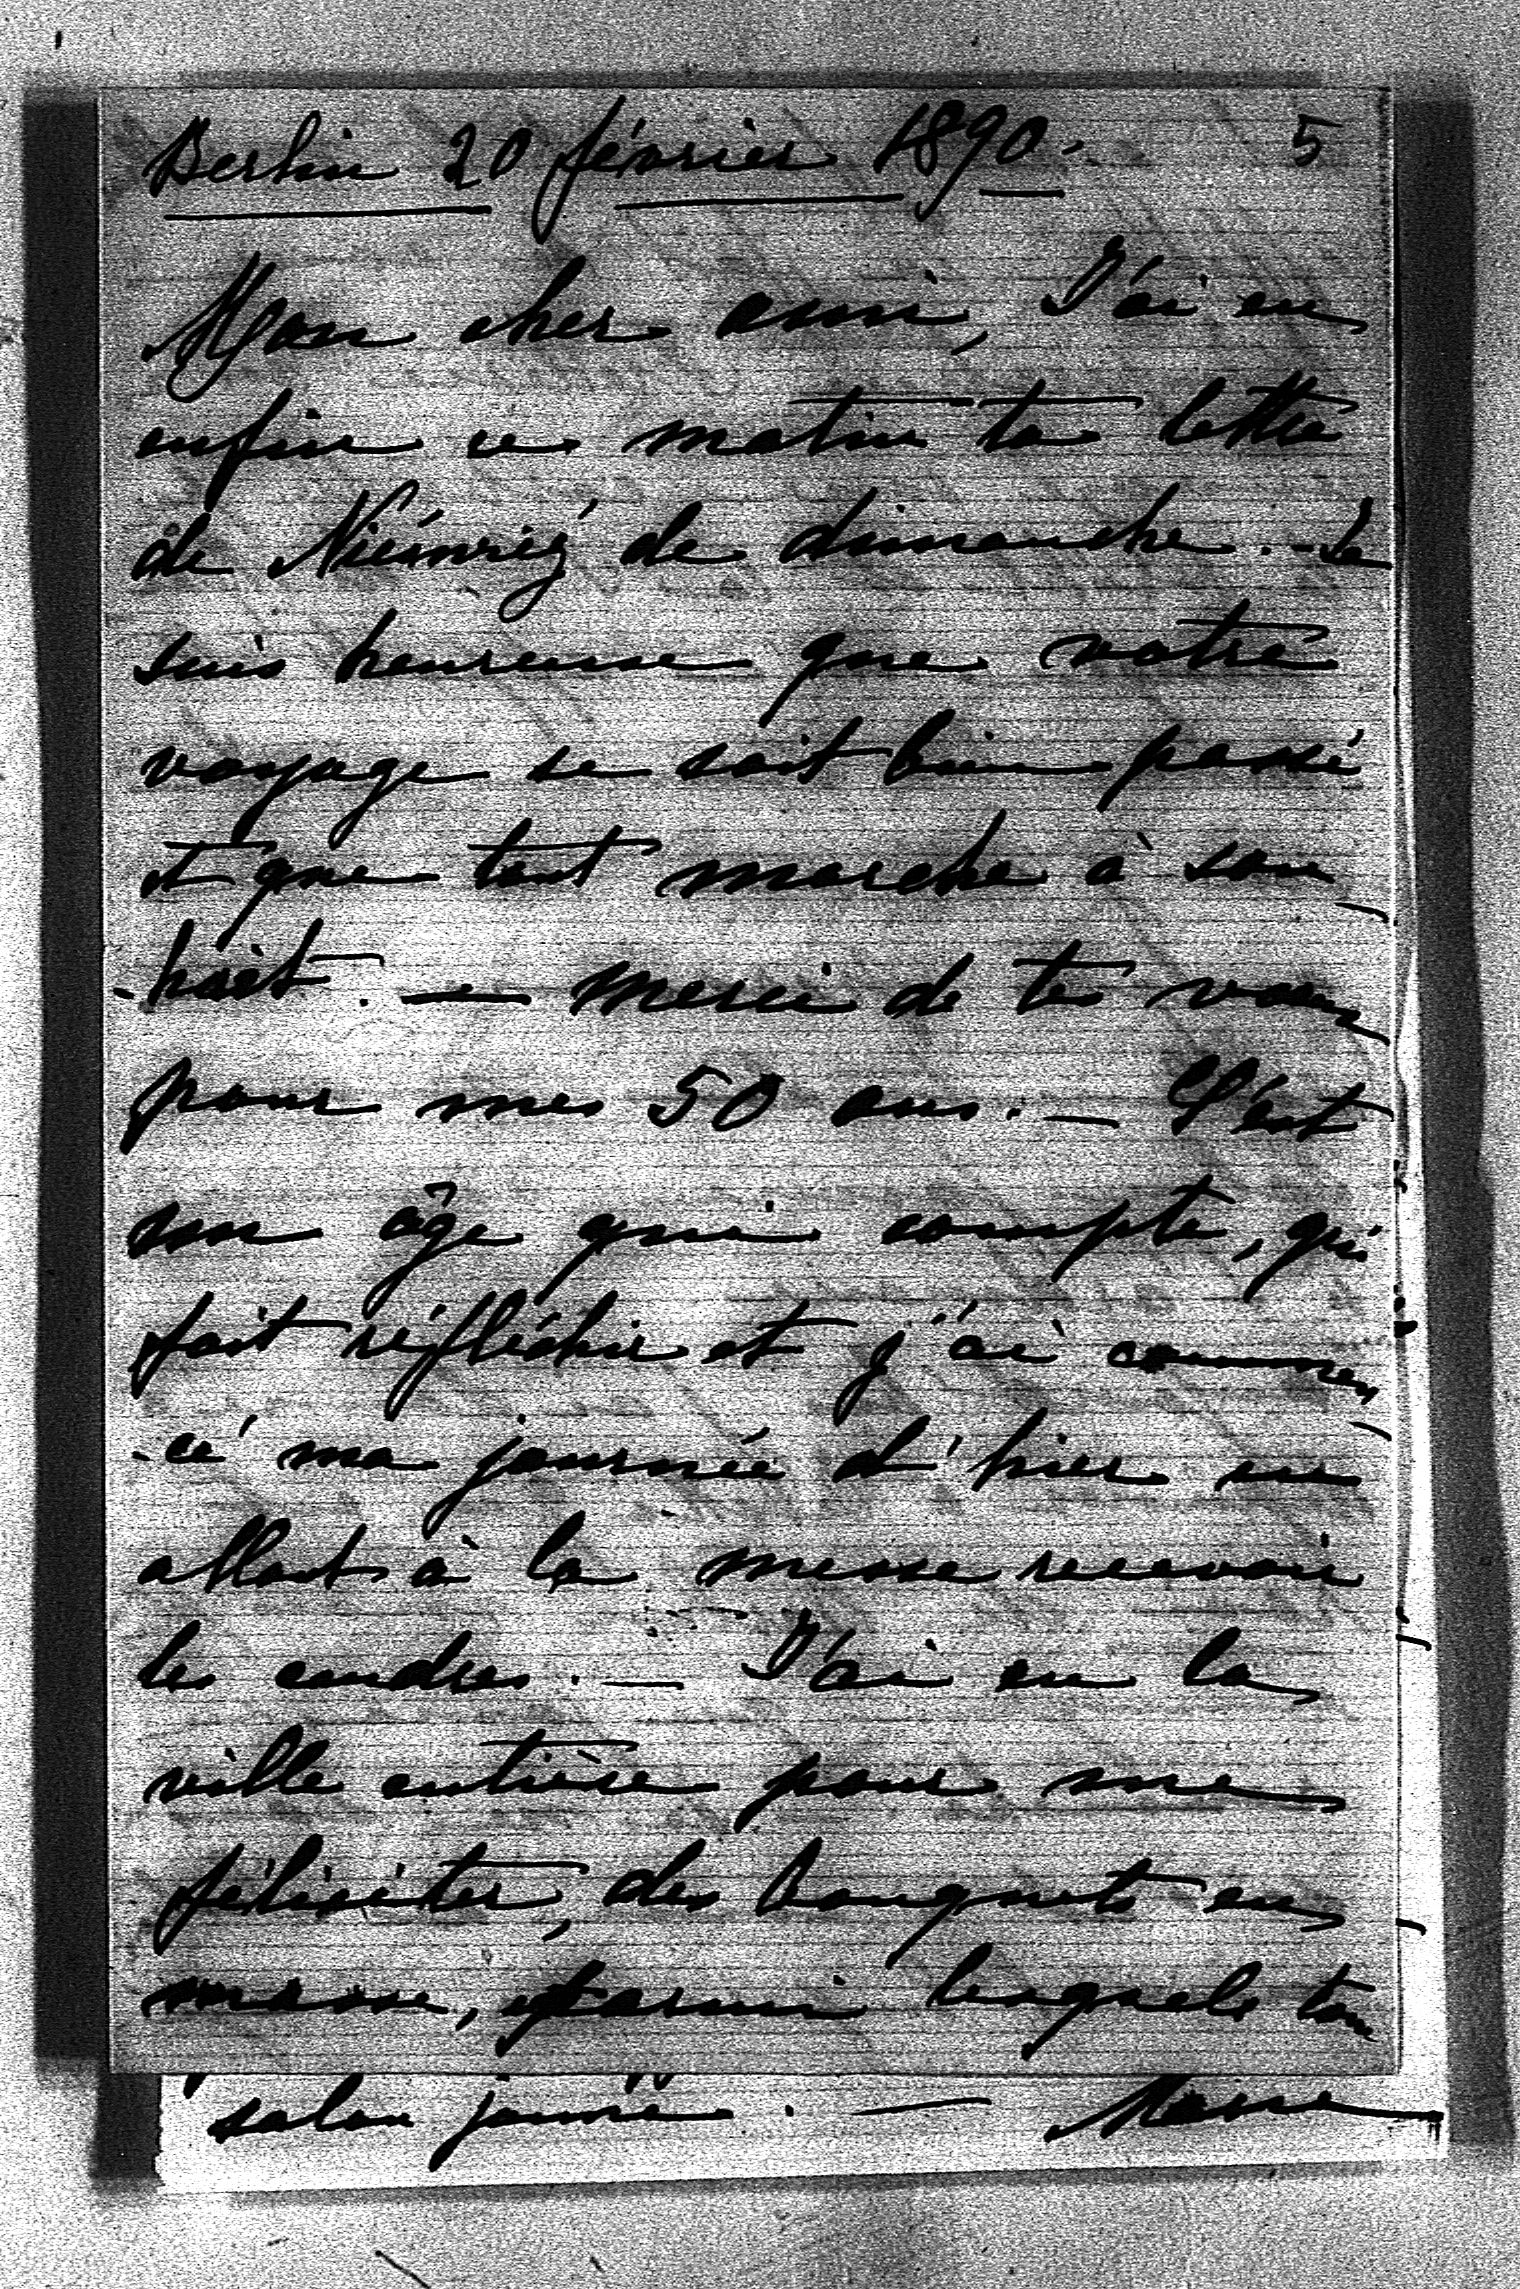 Berlin 20 février 1890. 5
Mon cher ami, J'ai eu
enfin ce matin ta lettre
de Niéswiéz de dimanche. - Je
suis heureuse que votre
voyage se soit bien passé
et que tout marche à sou
-hait. — Merci de tes vœux
pour mes 50 ans. — C'est
un âge qui compte, qui
fait réfléchir et j'ai commen
-cé ma journée d'hier en
allant à la messe recevoir
les cendres. — J'ai eu la
ville entière pour me
féliciter, des bouquets en
masse, parmi lesquels ton
salon jaune. —